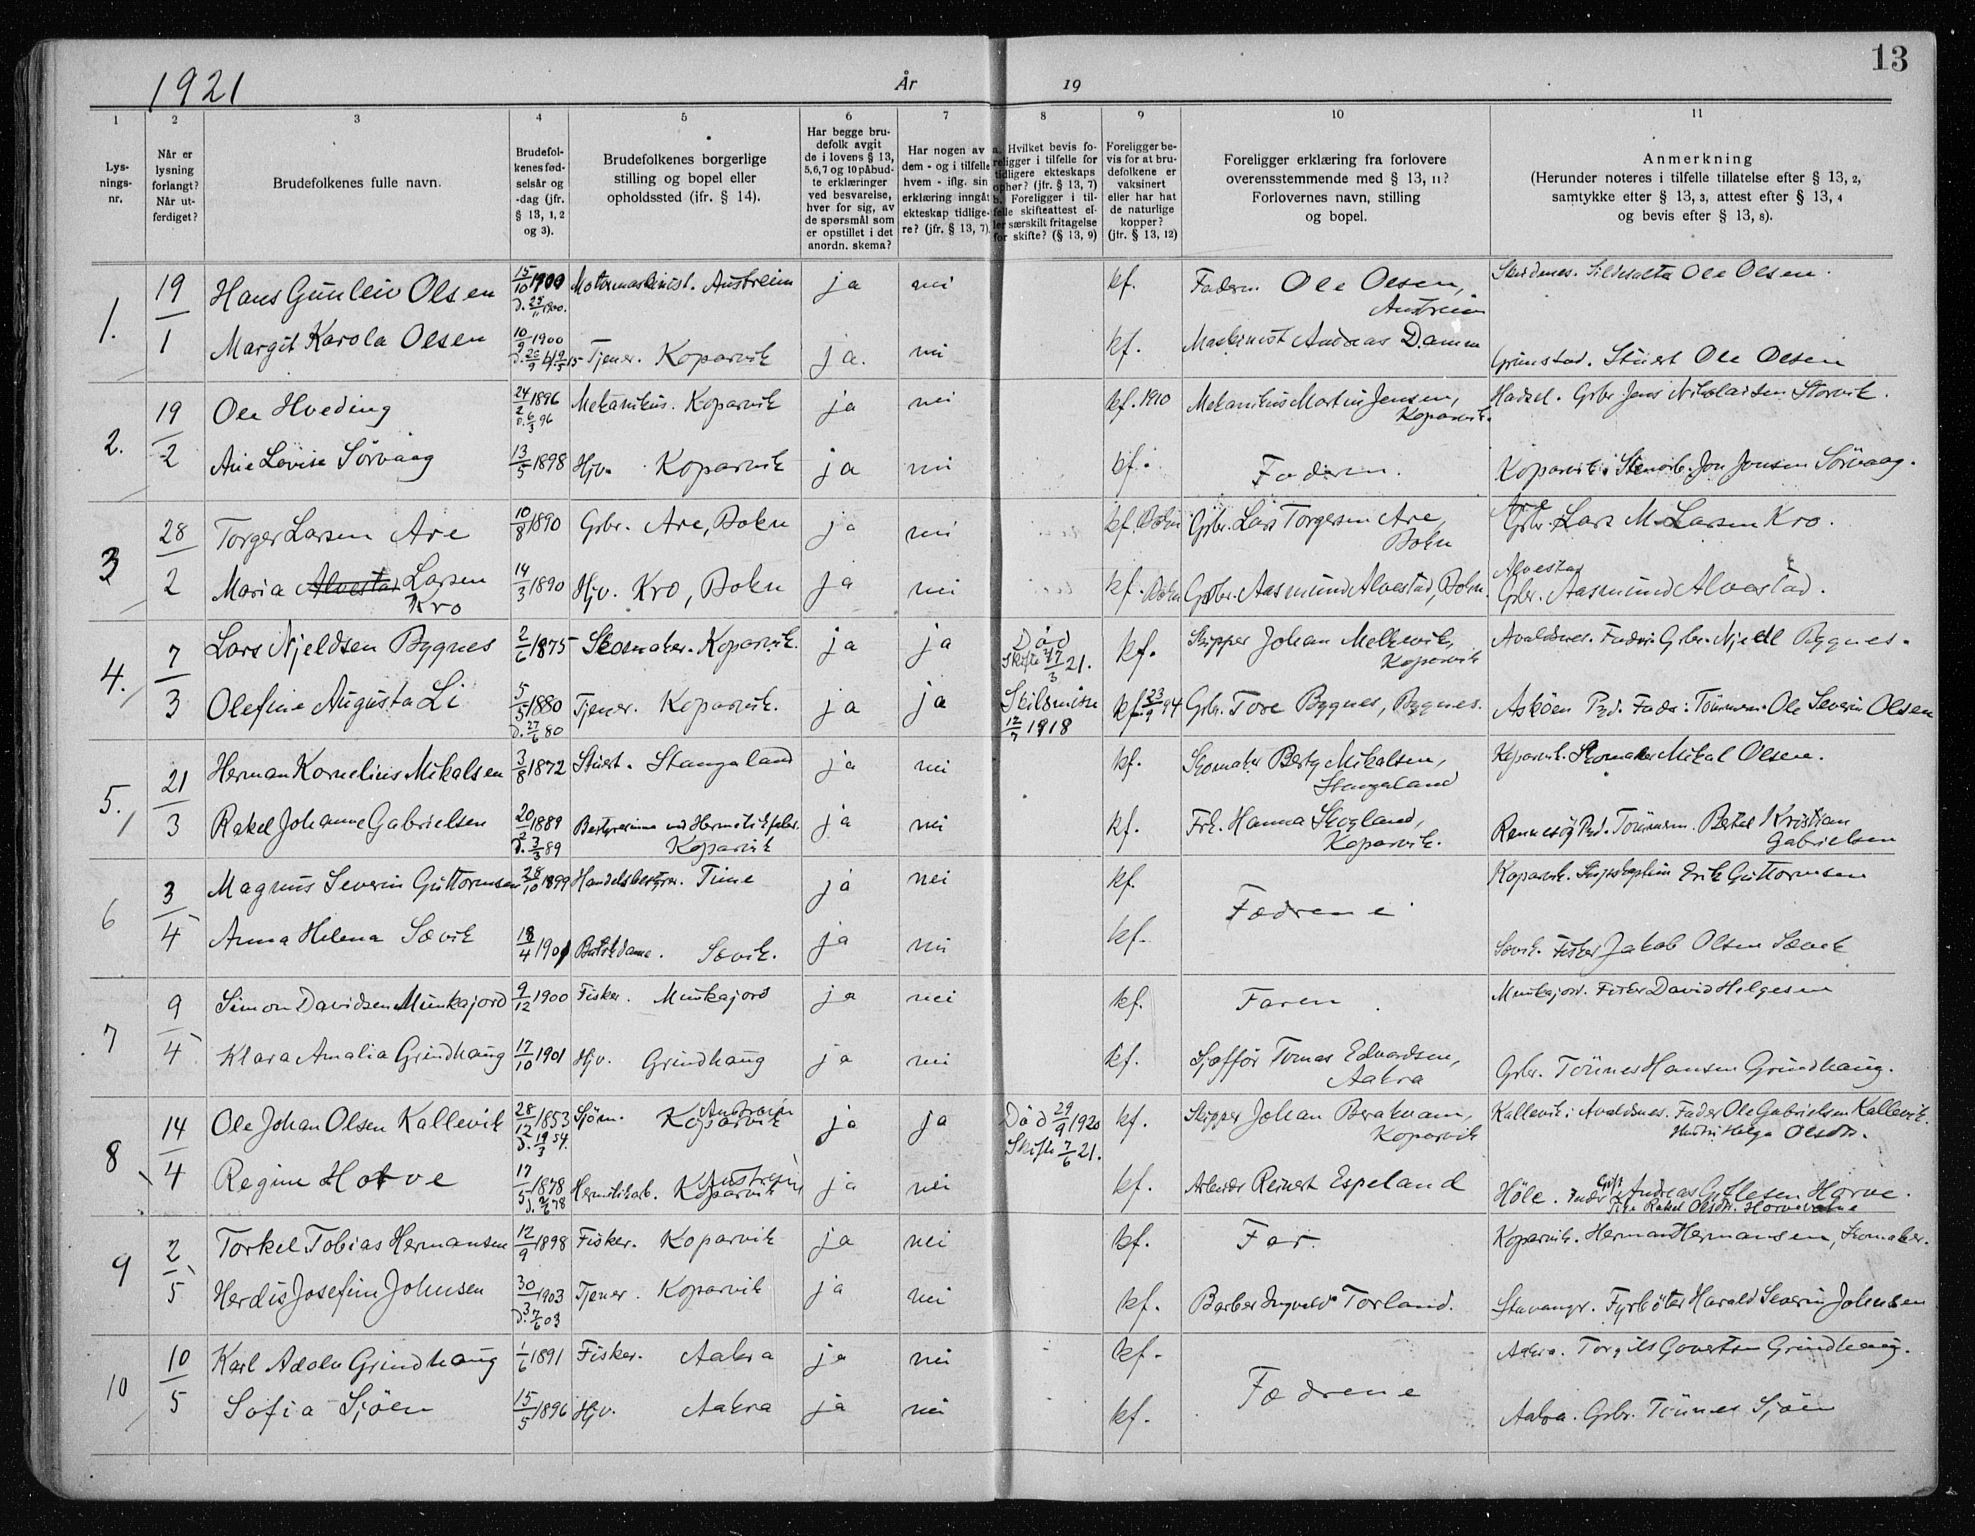 1921 År 19 13
1 2 3 4 5 6 7 8 9 10 11
Lys-
nings-
nr.
Når er
lysning
forlangt?
Når ut-
ferdiget?
Brudefolkenes fulle navn.
Brudefol-
kenes fød-
selsår og
-dag (jfr.
§ 13, 1, 2
og 3).
Brudefolkenes borgerlige
stilling og bopel eller
opholdssted (jfr. § 14).
Har begge bru-
defolk avgit
de i lovens § 13,
5, 6, 7 og 10 påbud-
te erklæringer
ved besvarelse,
hver for sig, av
de spørsmål som
er opstillet i det
anordn. skema?
Har nogen av
dem - og i tilfelle
hvem - iflg. sin
erklæring inngåt
ekteskap tidlige-
re? (jfr. § 13, 7).
a. Hvilket bevis fo-
religger i tilfelle for
tidligere ekteskaps
ophør? (jfr. § 13, 7)
b. Foreligger i til-
felle skifteattest el-
ler særskilt fritagelse
for skifte? (§ 13, 9)
Foreligger be-
vis for at bru-
defolkene er
vaksinert
eller har hat
de naturlige
kopper?
(jfr. § 13, 12)
Foreligger erklæring fra forlovere
overensstemmende med § 13, 11?
Forlovernes navn, stilling
og bopel.
Anmerkning
(Herunder noteres i tilfelle tillatelse efter § 13, 2,
samtykke efter § 13, 3, attest efter § 13, 4
og bevis efter § 13, 8).
1. 19/1 Hans Gunleiv Olsen 15/10 1900 Motormaskinist. Austreim ja nei kf. Faderen Ole Olsen, Skudenes. Sildesalter Ole Olsen.
Austreim
Margit Karola Olsen 10/9 1900 Tjener. Koparvik ja. nei kf. Maskinist Andreas Damm Grimstad. Stuert Ole Olsen
2. 19/2 Ole Hveding 24/2 1896 Mekanikus. Koparvik ja nei kf. 1910 Mekanikus Martin Jensen, Hadsel. Grbr. Jens Nikolaisen Storvik.
d. 6/3 96 Koparvik.
Ane Lovise Sörvaag 13/5 1898 Hjv. Koparvik ja nei kf. Faderen. Koparvik. Jon Jonsen Sörvaag.
3 28/2 Torger Larsen Are 10/8 1890 Grbr. Are, Bokn ja nei kf. Bokn Grbr. Lars Torgersen Are, Grbr. Lars M. Larsen Kro.
Bokn
Maria Alvestad Larsen 14/3 1890 Hjv. Kro, Bokn ja nei kf. Bokn Grbr. Aasmund Alvestad, Bokn. Alvestad
Kro Grbr. Aasmund Alvestad.
4. 7/3 Lars Njeldsen Bygnes 2/6 1875 Skomaker. Koparvik. ja ja Död kf. Skipper Johan Melkevik, Avaldsnes. Fader: Grbr. Njell Bygnes.
Skifte 17/3 21. Koparvik
Olefine Augusta Li 5/5 1880 Tjener. Koparvik. ja ja Skilsmisse kf. 23/9 94 Grbr. Tore Bygnes, Bygnes. Asköen Pgd. Fader: Tömmerm. Ole Severin Olsen
d. 27/6 80 12/7 1918
5. 21/3 Herman Kornelius Mikalsen 3/8 1872 Stuert. Stangaland ja nei kf. Skomaker Berty Mikalsen, Koparvik. Skomaker Mikal Olsen.
Stangaland
Rakel Johanne Gabrielsen 20/2 1889 Bestyrerinne ved Hermetikfabr. ja nei kf. Frk. Hanna Skogland, Rennesöy Pgd. Tömmerm. Betel Kristian
d. 3/3 89 Koparvik Koparvik. Gabrielsen
6 3/4 Magnus Severin Guttormsen 28/10 1899 Handelsbestyrer. Time ja nei kf. Koparvik. Skipskaptein Erik Guttormsen
Fædrene
Anna Helena Sævik 18/4 1901 Butikdame. Sævik. ja nei kf. Sævik. Fisker Jakob Olsen Sævik
7 9/4 Simon Davidsen Munkajord 9/12 1900 Fisker. Munkajord ja nei kf. Faren. Munkajord. Fisker David Helgesen
Klara Amalia Grindhaug 17/10 1901 Hjv. Grindhaug ja nei kf. Sjofför Tomas Edvardsen, Grbr. Tönnes Hansen Grindhaug.
Aakra
8 14/4 Ole Johan Olsen Kallevik 28/12 1853 Sjöm. Koparvik Austreim ja ja Död 29/9 1920 kf. Skipper Johan Berakvam, Kallevik i Avaldsnes. Fader Ole Gabrielsen Kallevik.
d. 19/3 54. Skifte 7/6 21. Koparvik Helga Olsdtr.
Regine Horve 17/5 1878 Hermetikarb. Koparvik Austreim ja nei kf. Arbeider Reinert Espeland Höle. Fader Andreas Horve.
Rakel Olsdtr.
9 2/5 Torkel Tobias Hermansen 12/9 1898 Fisker. Koparvik ja nei kf. Far. Koparvik. Herman Hermansen, Skomaker.
Herdis Josefine Johnsen 30/3 1903 Tjener. Koparvik ja nei kf. Barber Ingvald Torland. Stavanger. Fyrböter Harald Severin Johnsen
d. 7/6 03
10 10/5 Karl Adolv Grindhaug 1/6 1891 Fisker. Aakra ja nei kf. Aakra. Torgils Govertsen Grindhaug.
Fædrene
Sofia Sjöen 15/5 1896 Hjv. Aakra ja nei kf. Aakra. Grbr. Tönnes Sjöen